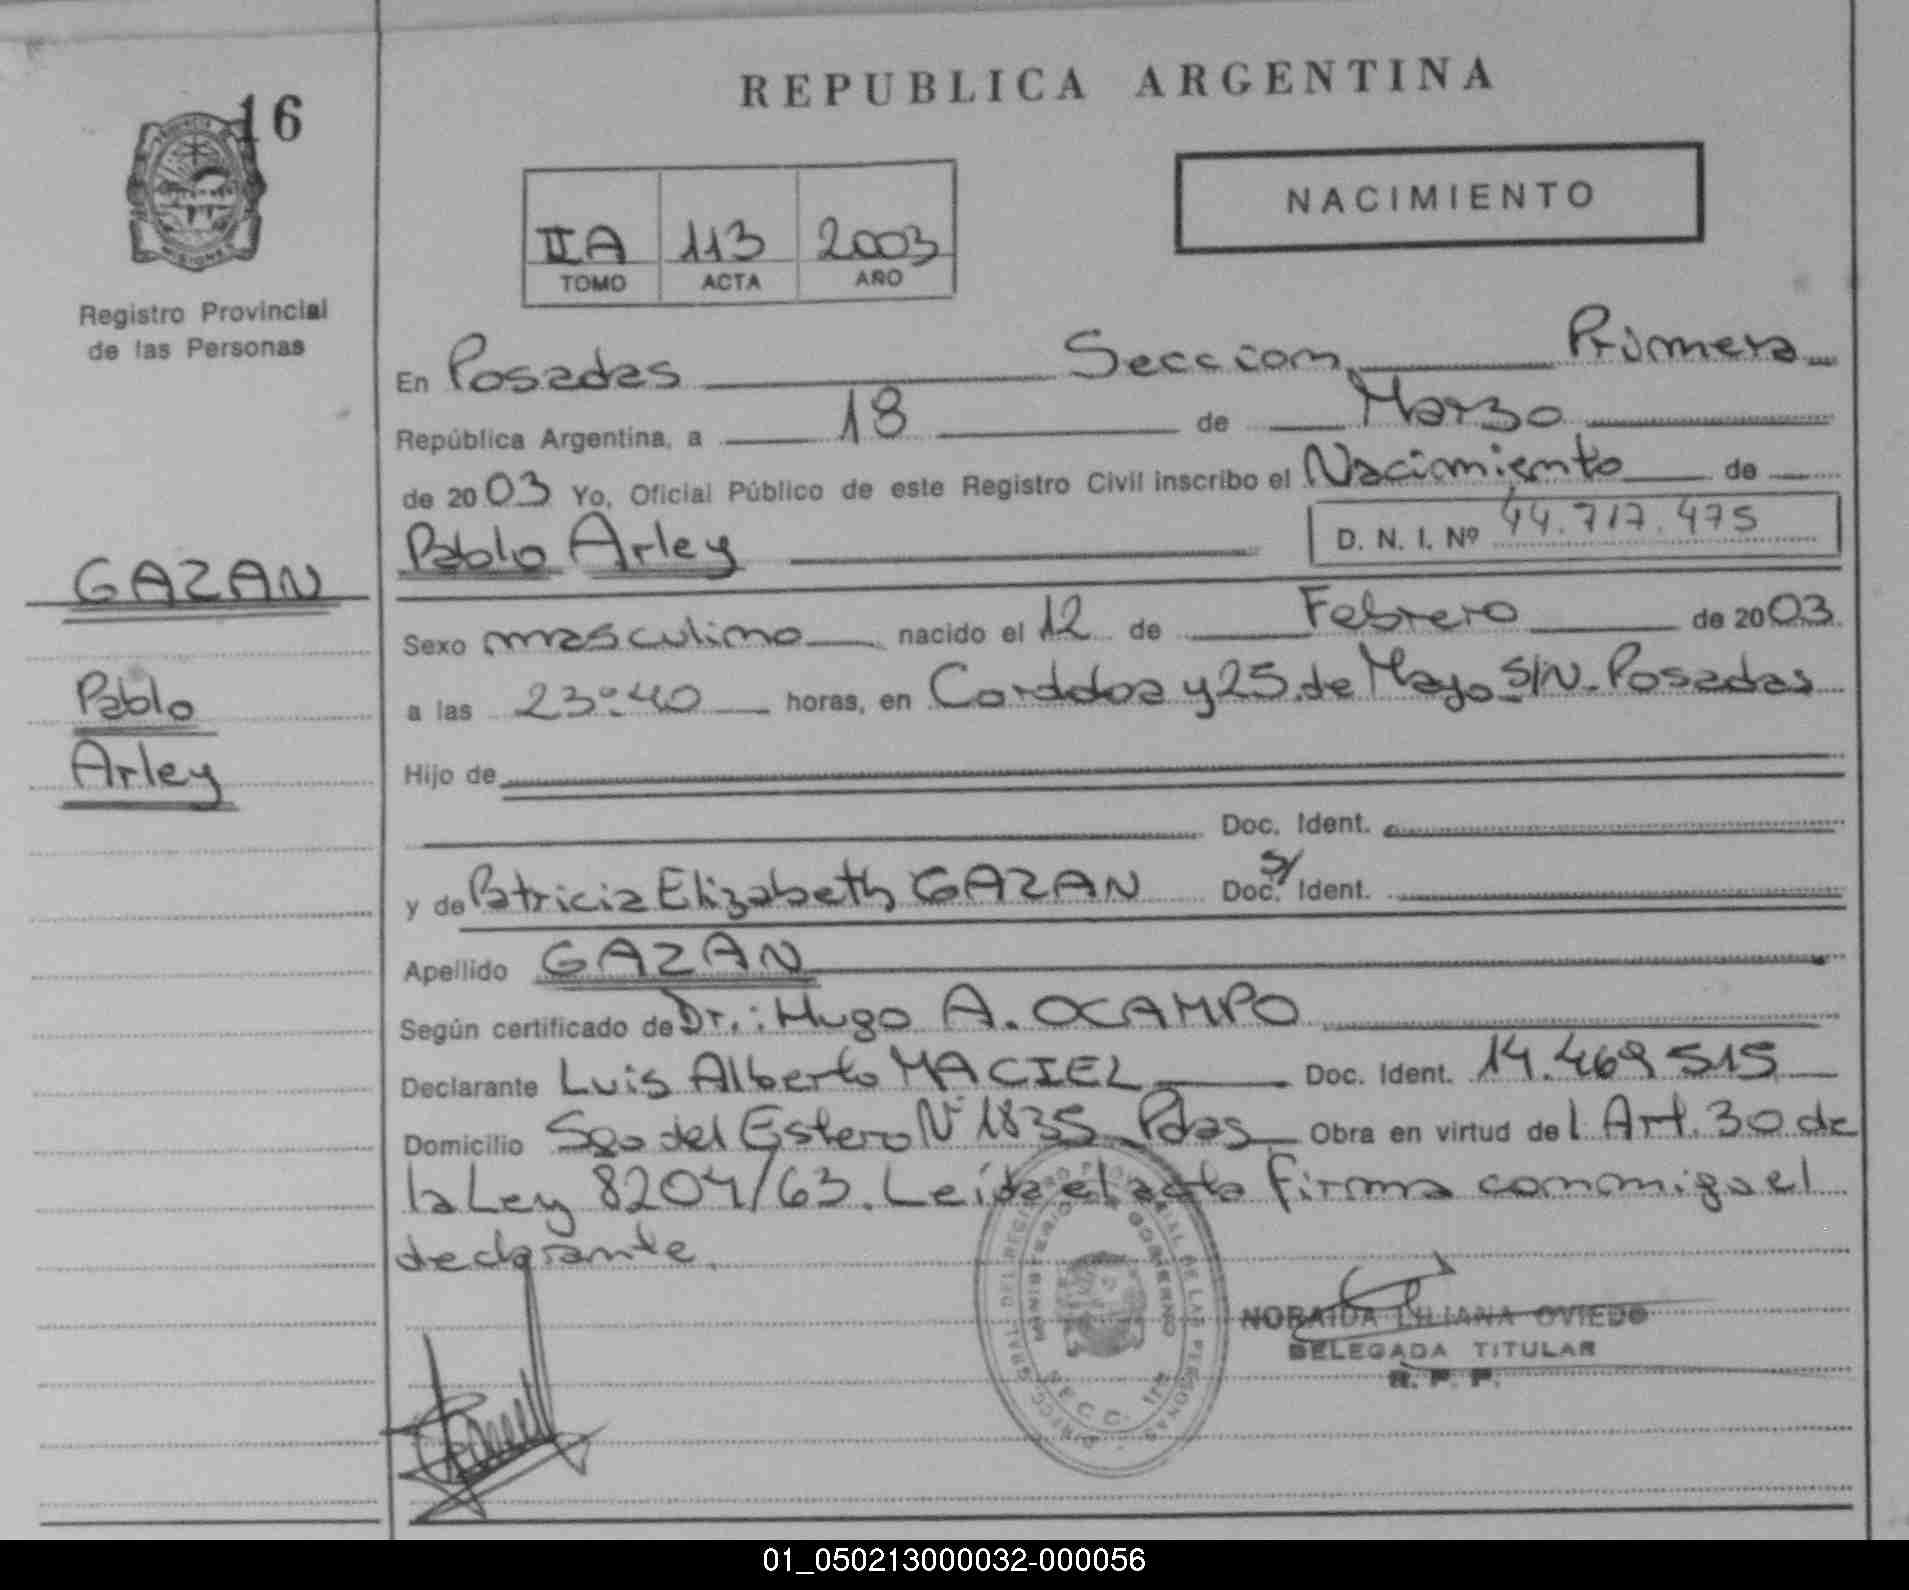 16
REPUBLICA ARGENTINA
NACIMIENTO
IIA 113 2003
TOMO ACTA AÑO
Registro Provincial
de las Personas
En Posadas Seccion Primera
República Argentina, a 18 de Marzo
de 2003 Yo, Oficial Público de este Registro Civil inscribo el Nacimiento de
Pablo Arley
D. N. I. Nº 44.717.475
GAZAN
Pablo
Arley
Sexo masculino nacido el 12 de Febrero de 2003
a las 23:40 horas, en Cordoba y 25 de Mayo S/N. Posadas
Hijo de
Doc. Ident.
y de Patricia Elizabeth GAZAN Doc. S/ Ident.
Apellido GAZAN
Según certificado de Dr.: Hugo A. OCAMPO
Declarante Luis Alberto MACIEL Doc. Ident. 14.469.515
Domicilio Sgo del Estero Nº 1835 Pdas Obra en virtud del Art. 30 de
la Ley 8204/63. Leída el acta firma conmigo el
declarante.
MINISTERIO DE GOBIERNO
DIRECC. GRAL. DEL REGISTRO PROVINCIAL DE LAS PERSONAS
SECC. 1ra
NORAIDA LILIANA OVIEDO
DELEGADA TITULAR
R. P. P.
01_050213000032-000056